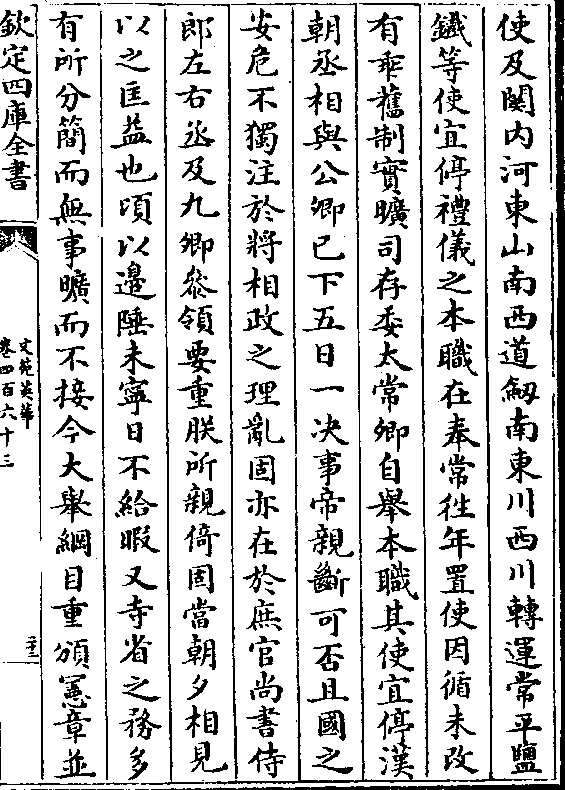 使及關内河東山南西道劔南東川西川轉運常平鹽
鐵等使宜停禮儀之本職在奉常徃年置使因循未改
有乖舊制實曠司存委太常卿自舉本職其使宜停漢
朝丞相與公卿已下五日一决事帝親斷可否且國之
安危不獨注於將相政之理亂固亦在於庶官尚書侍
郎左右丞及九卿叅領要重朕所親倚固當朝夕相見
以之匡益也頃以邊陲未寧日不給暇又寺省之務多
有所分簡而無事曠而不接今大舉綱目重頒憲章並
欽定四庫全書
文苑英華
卷四百六十三
二十二